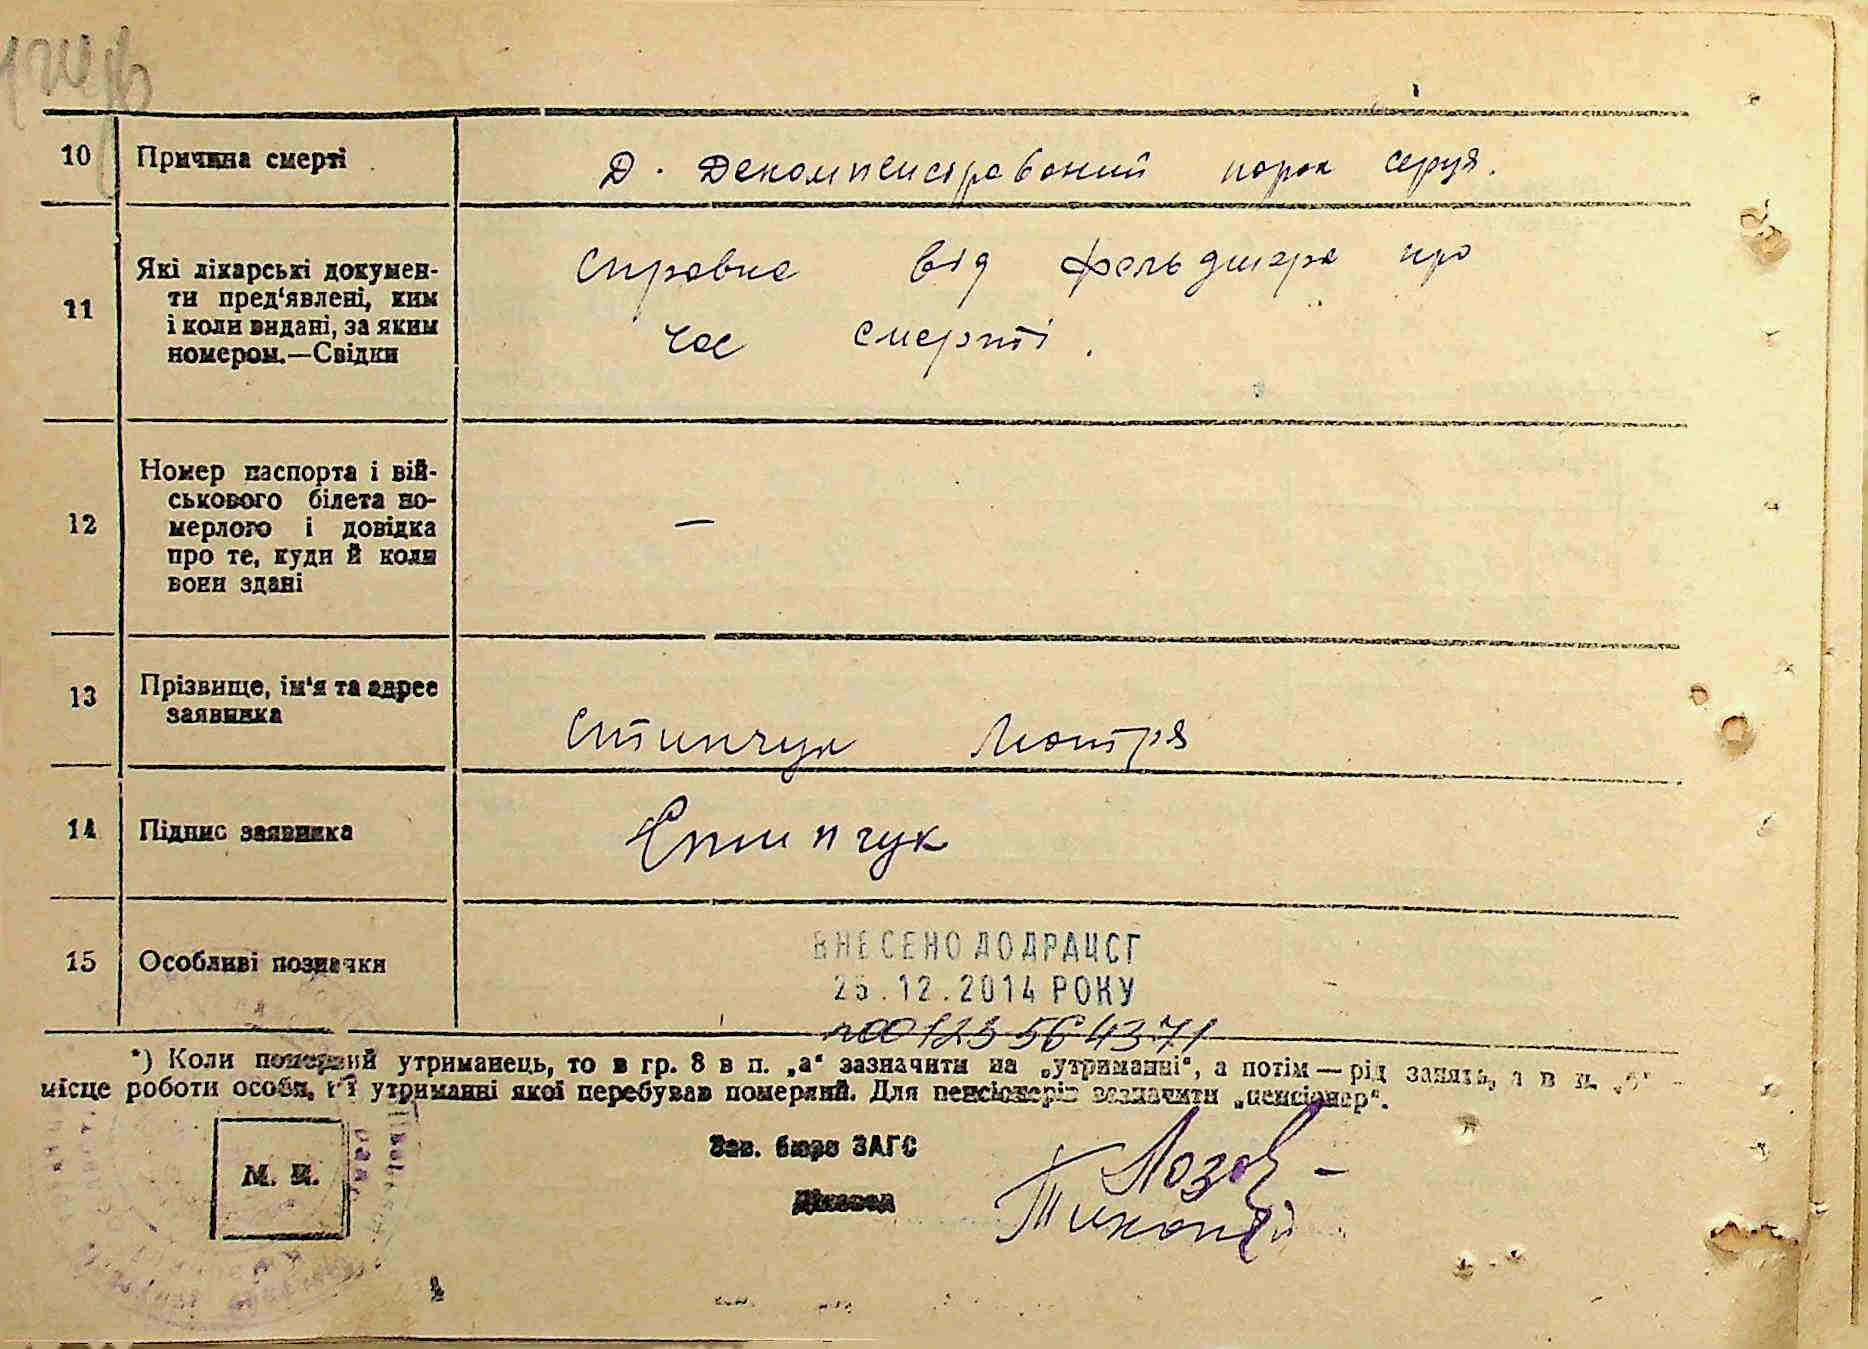 10 Причина смерті Д. Декомпенсірований порок серця.
11 Які лікарські докумен-
ти пред'явлені, ким
і коли видані, за яким
номером.—Свідки
справка від фельдшера про
час смерті.
12 Номер паспорта і вій-
ськового білета по-
мерлого і довідка
про те, куди й коли
вони здані
—
13 Прізвище, ім'я та адрес
заявника
Стипчук Мотря
14 Підпис заявника Стипчук
15 Особливі позначки
ВНЕСЕНО ДО ДРАЦСГ
25.12.2014 РОКУ
№00123564371
*) Коли померлий утриманець, то в гр. 8 в п. „а“ зазначити на „утриманні“, а потім — рід занять, а в п.
місце роботи особи, на утриманні якої перебував померлий. Для пенсіонерів зазначити „пенсіонер“.
Зав. бюро ЗАГС
М. П.
Діловод